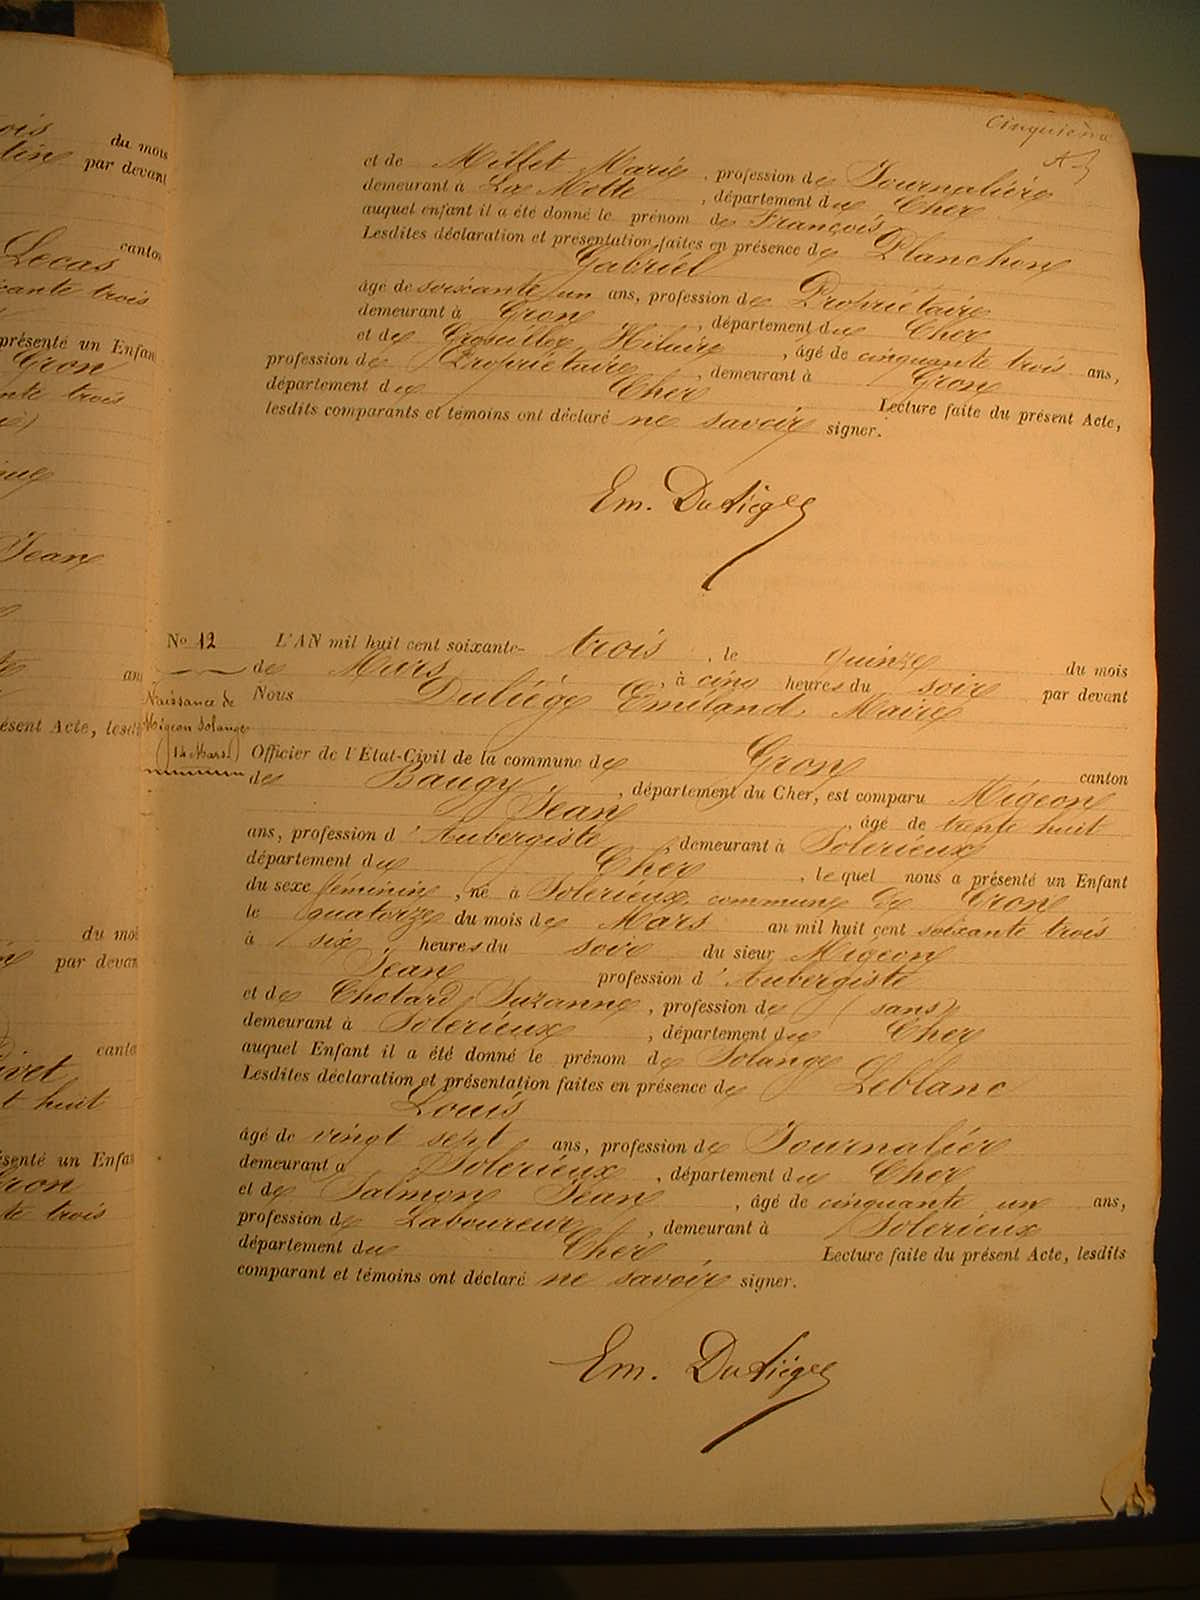 ois du mois
tin par devant
canton
Lecas
cante trois
présenté un Enfan
Gron
nte trois
Jean
ans
ésent Acte, lesdit
du moi
par devan
canto
ivet
t huit
ésenté un Enfa
Gron
te trois
Cinquième
et de Millet Marie, profession de Journalière
demeurant à La Motte, département du Cher
auquel enfant il a été donné le prénom de François
Lesdites déclaration et présentation faites en présence de Planchon
Gabriel
âgé de soixante un ans, profession de Propriétaire
demeurant à Gron, département du Cher
et de Grosuillex Hilaire, âgé de cinquante trois ans,
profession de Propriétaire, demeurant à Gron
département du Cher Lecture faite du présent Acte,
lesdits comparants et témoins ont déclaré ne savoir signer.
Em. Duliège
No 12 L'AN mil huit cent soixante-trois, le quinze du mois
de Mars, à cinq heures du soir par devant
Nous Duliége Emiland, Maire
Naissance de
Migeon Solange
(14 Mars.)
Officier de l'Etat-Civil de la commune de Gron canton
de Baugy, département du Cher, est comparu Migeon
Jean, âgé de trente huit
ans, profession d'Aubergiste, demeurant à Solerieux
département du Cher, le quel nous a présenté un Enfant
du sexe féminin, né à Solerieux, commune de Gron
le quatorze du mois de Mars an mil huit cent soixante trois
à six heures du soir du sieur Migeon
Jean profession d'Aubergiste
et de Chotard Suzanne, profession de (sans)
demeurant à Solerieux, département du Cher
auquel Enfant il a été donné le prénom de Solange
Lesdites déclaration et présentation faites en présence de Leblanc
Louis
âgé de vingt sept ans, profession de Journalier
demeurant à Solerieux, département du Cher
et de Salmon Jean, âgé de cinquante un ans,
profession de Laboureur, demeurant à Solerieux
département du Cher Lecture faite du présent Acte, lesdits
comparant et témoins ont déclaré ne savoir signer.
Em. Duliège